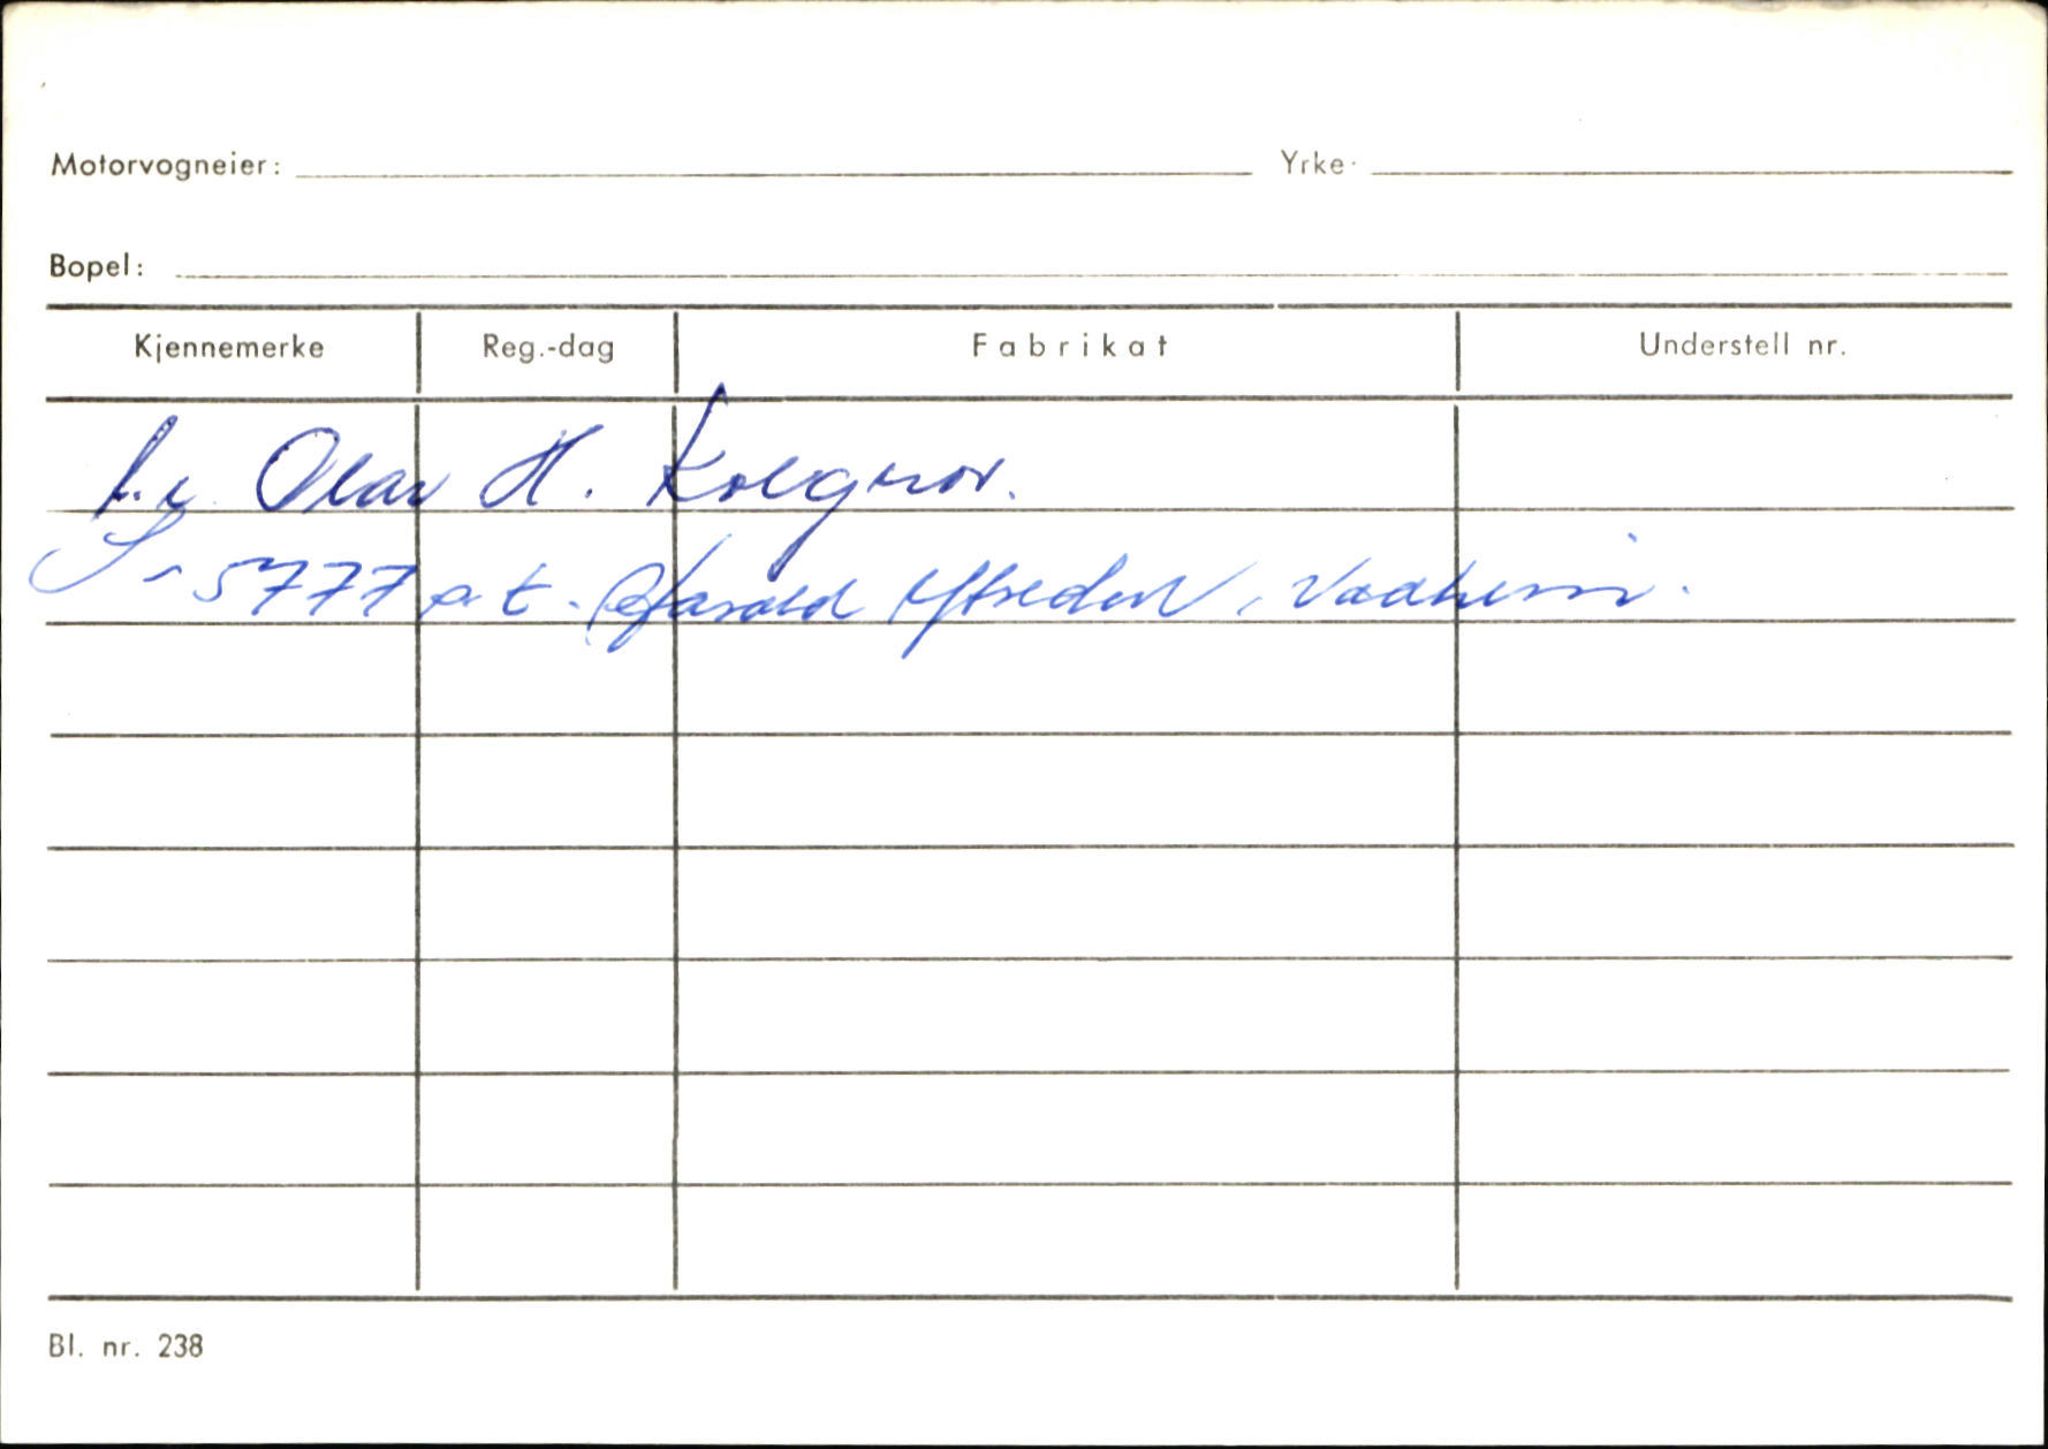 Motorvogneier: Yrke·
Bopel:
Kjennemerke Reg.-dag Fabrikat Understell nr.
Olav H. Kolgrov.
S-5777 a.t. Harald Ytredal, Vadheim.
Bl. nr. 238